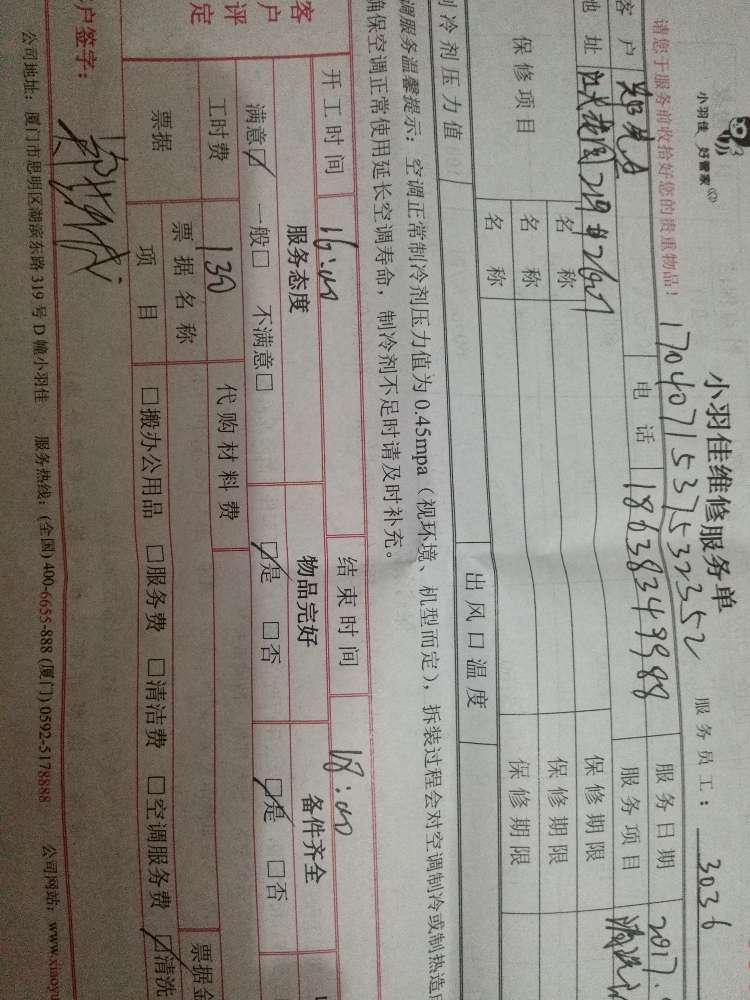 小羽佳 好管家
小羽佳维修服务单
服务员工： 3036
请您于服务前收拾好您的贵重物品！ 1704071537532352
客户 电话 18638349988 服务日期 2017.
地址 219#2607 服务项目 清洗
保修项目 名称 保修期限
名称 保修期限
名称 保修期限
制冷剂压力值 出风口温度
调服务温馨提示：空调正常制冷剂压力值为0.45mpa（视环境、机型而定），拆装过程会对空调制冷或制热造
确保空调正常使用延长空调寿命，制冷剂不足时请及时补充。
开工时间 16:00 结束时间 18:00
客户评定 服务态度 物品完好 备件齐全
满意☑ 一般□ 不满意□ ☑是 □否 ☑是 □否
工时费 130 代购材料费
票据 票据名称 票据金
项目 □搬办公用品 □服务费 □清洁费 □空调服务费 ☑清洗
户签字：
公司地址：厦门市思明区湖滨东路319号D幢小羽佳 服务热线：(全国) 400-6655-888 (厦门) 0592-5178888 公司网站：www.xiaoyu